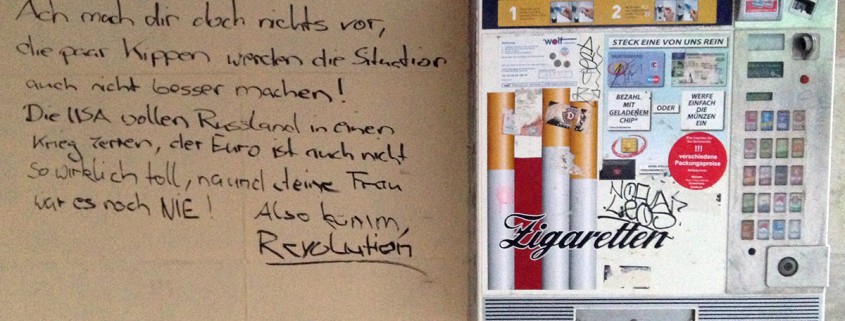 Ach mach dir doch nichts vor,
die paar Kippen werden die Situation
auch nicht besser machen!
Die USA wollen Russland in einen
Krieg zerren, der Euro ist auch nicht
so wirklich toll, na und deine Frau
war es noch NIE!
Also komm,
Revolution
1 2
wolf
STECK EINE VON UNS REIN
BEZAHL
MIT
GELADENEM
CHIP*
ODER
WERFE
EINFACH
DIE
MÜNZEN
EIN
!!!
verschiedene
Packungspreise
Zigaretten